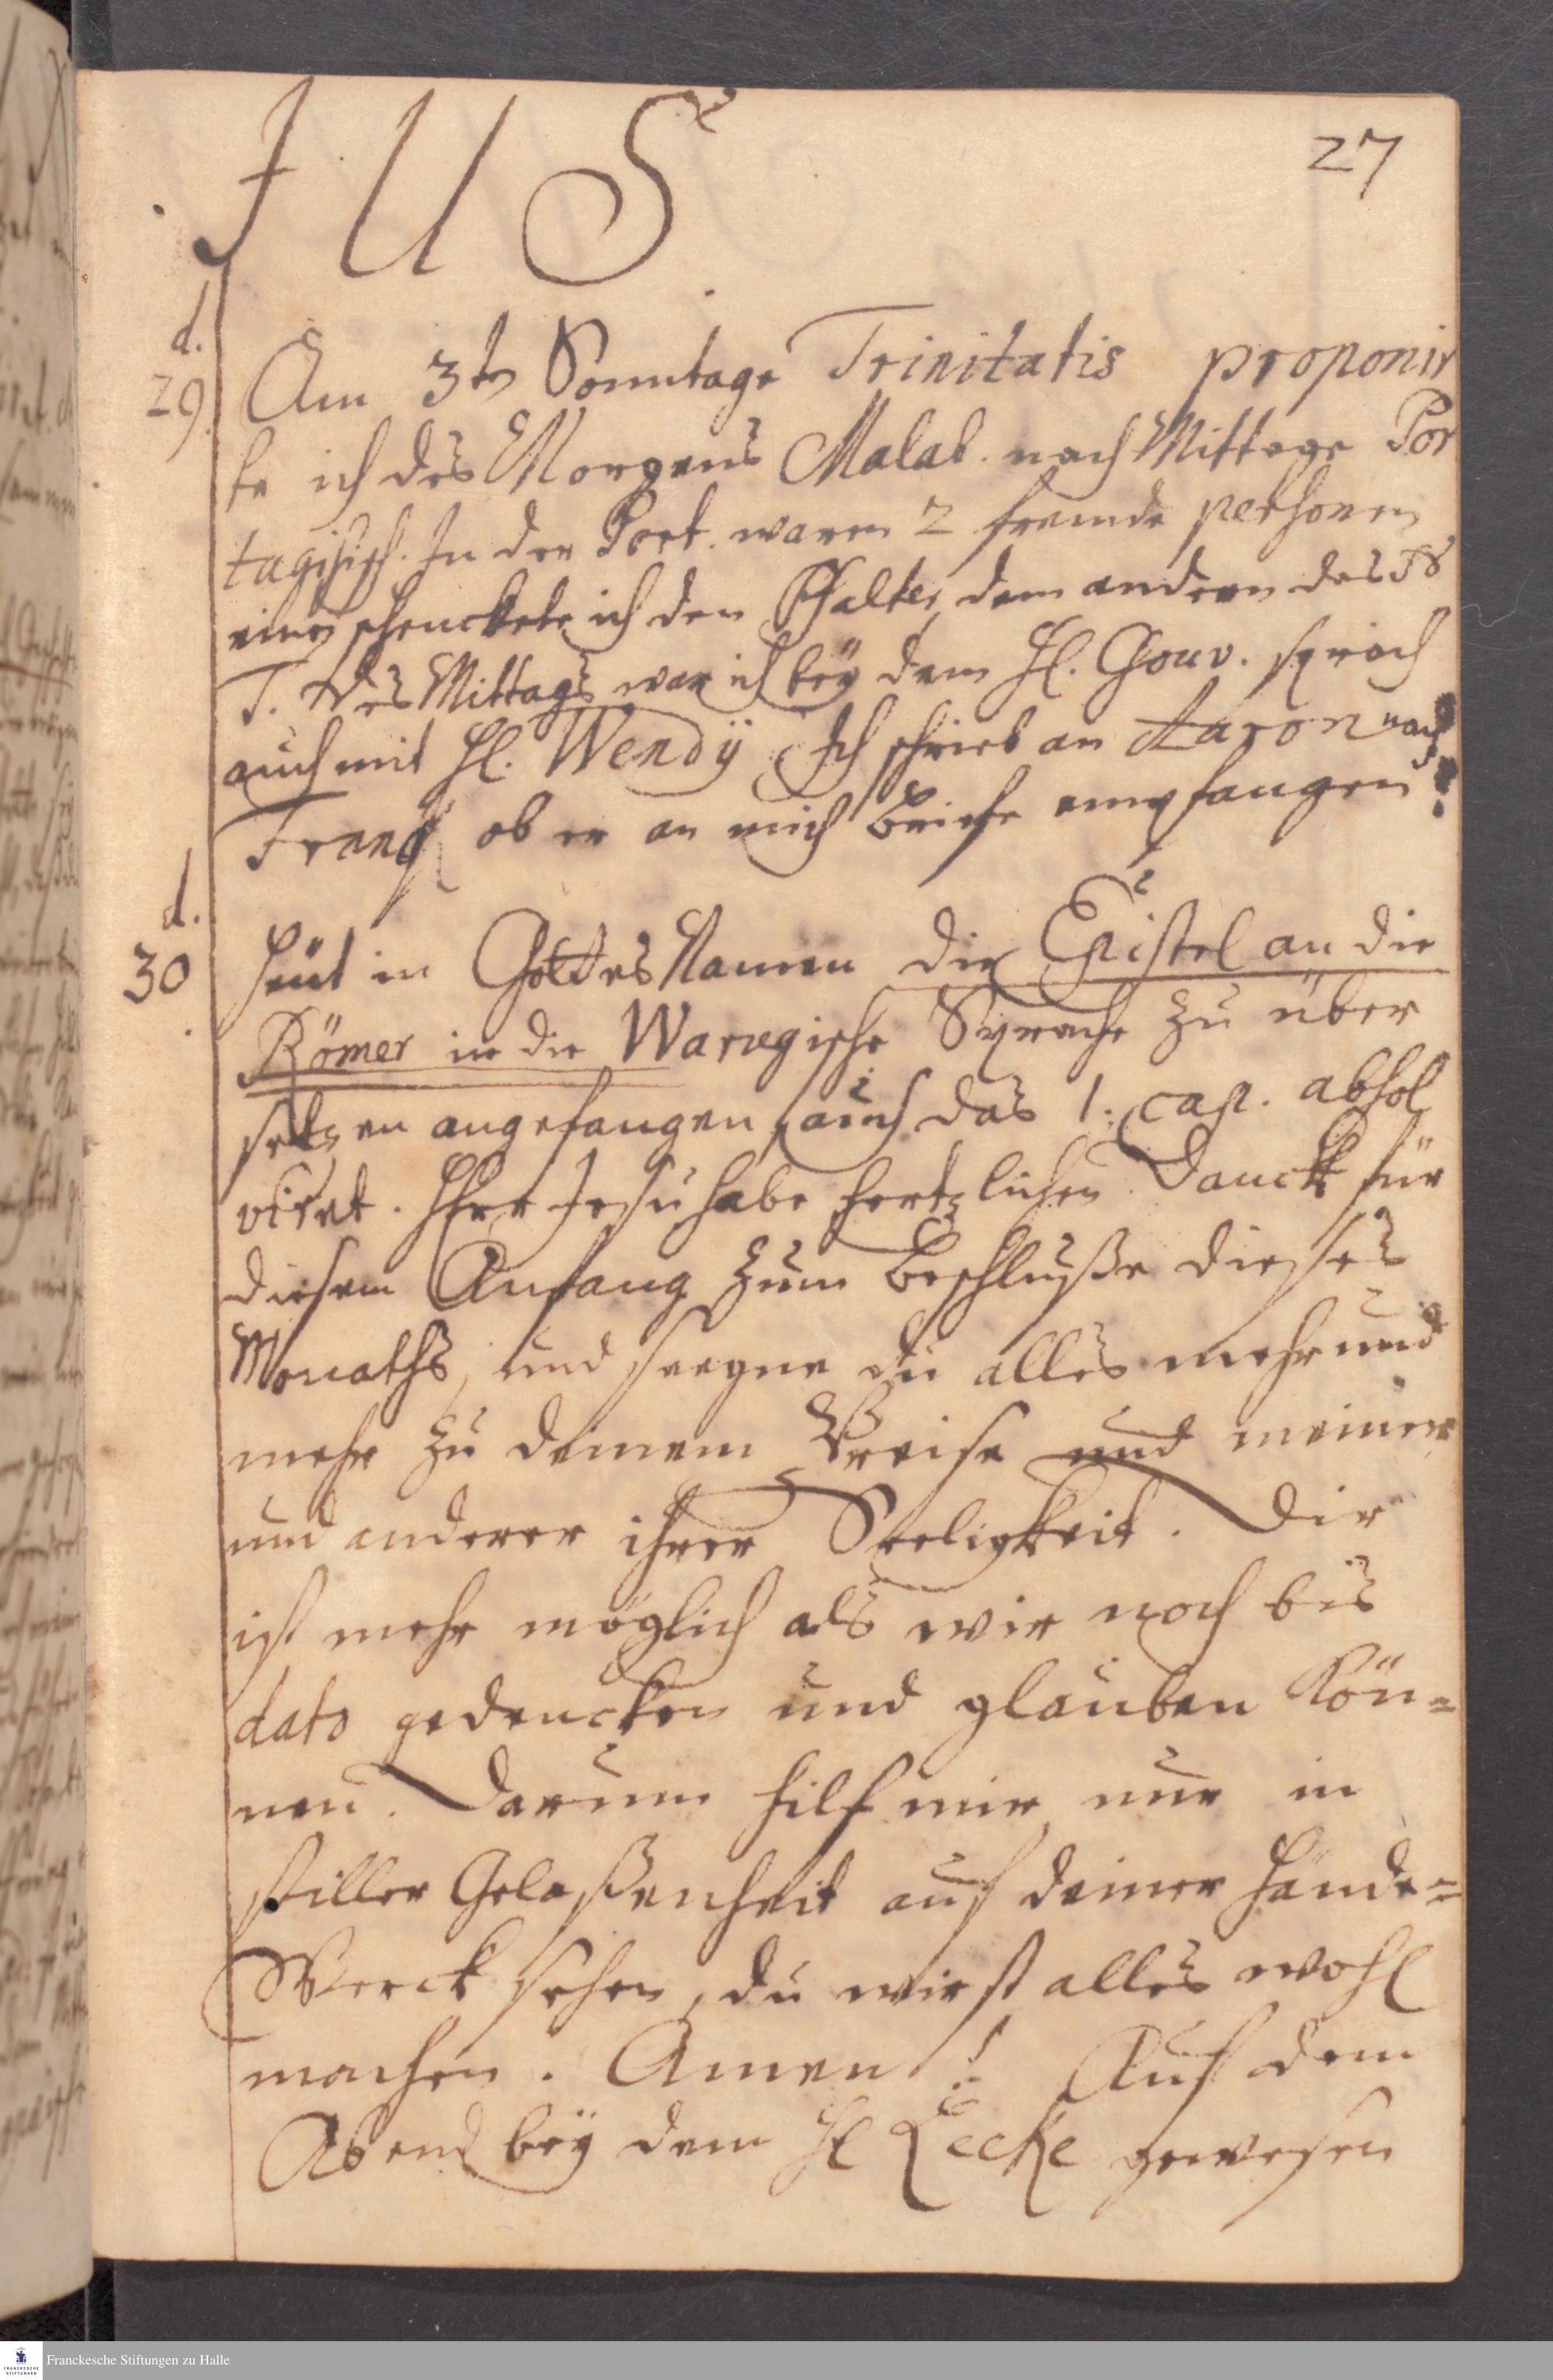 J U S
27
d.
29.
Am 3ten Sonntage Trinitatis proponir
te ich des Morgens Malab. nach Mittage Por
tugisisch. In der Port. waren 2 fremde personen
einen schenckete ich den Psalter, dem andern das N
T. Des Mittags war ich bey dem H. Gouv. sprach
auch mit H. Wendÿ. Ich schrieb an Aaron nach
Tranq ob er an mich briefe empfangen?
d.
30
Heut in Gottes Namen die Epistel an die
Römer in die Warugische Sprache zu über
setzen angefangen, auch das 1. cap. absol
viret. Herr Jesu habe hertzlichen Danck für
diesem Anfang zum beschluße dieses
Monaths, und seegne du alles mehr und
mehr zu deinem Preise und meiner
und anderer ihrer Seeligkeit. Dir
ist mehr möglich als wir noch bis
dato gedencken und glauben kön-
nen. Darum hilf mir nur in
stiller Gelaßenheit auf deiner Hände-
Werck sehen, du wirst alles wohl
machen. Amen! Auf dem
Abend bey dem H Lecke gewesen
Franckesche Stiftungen zu Halle
FRANCKESCHE
STIFTUNGEN